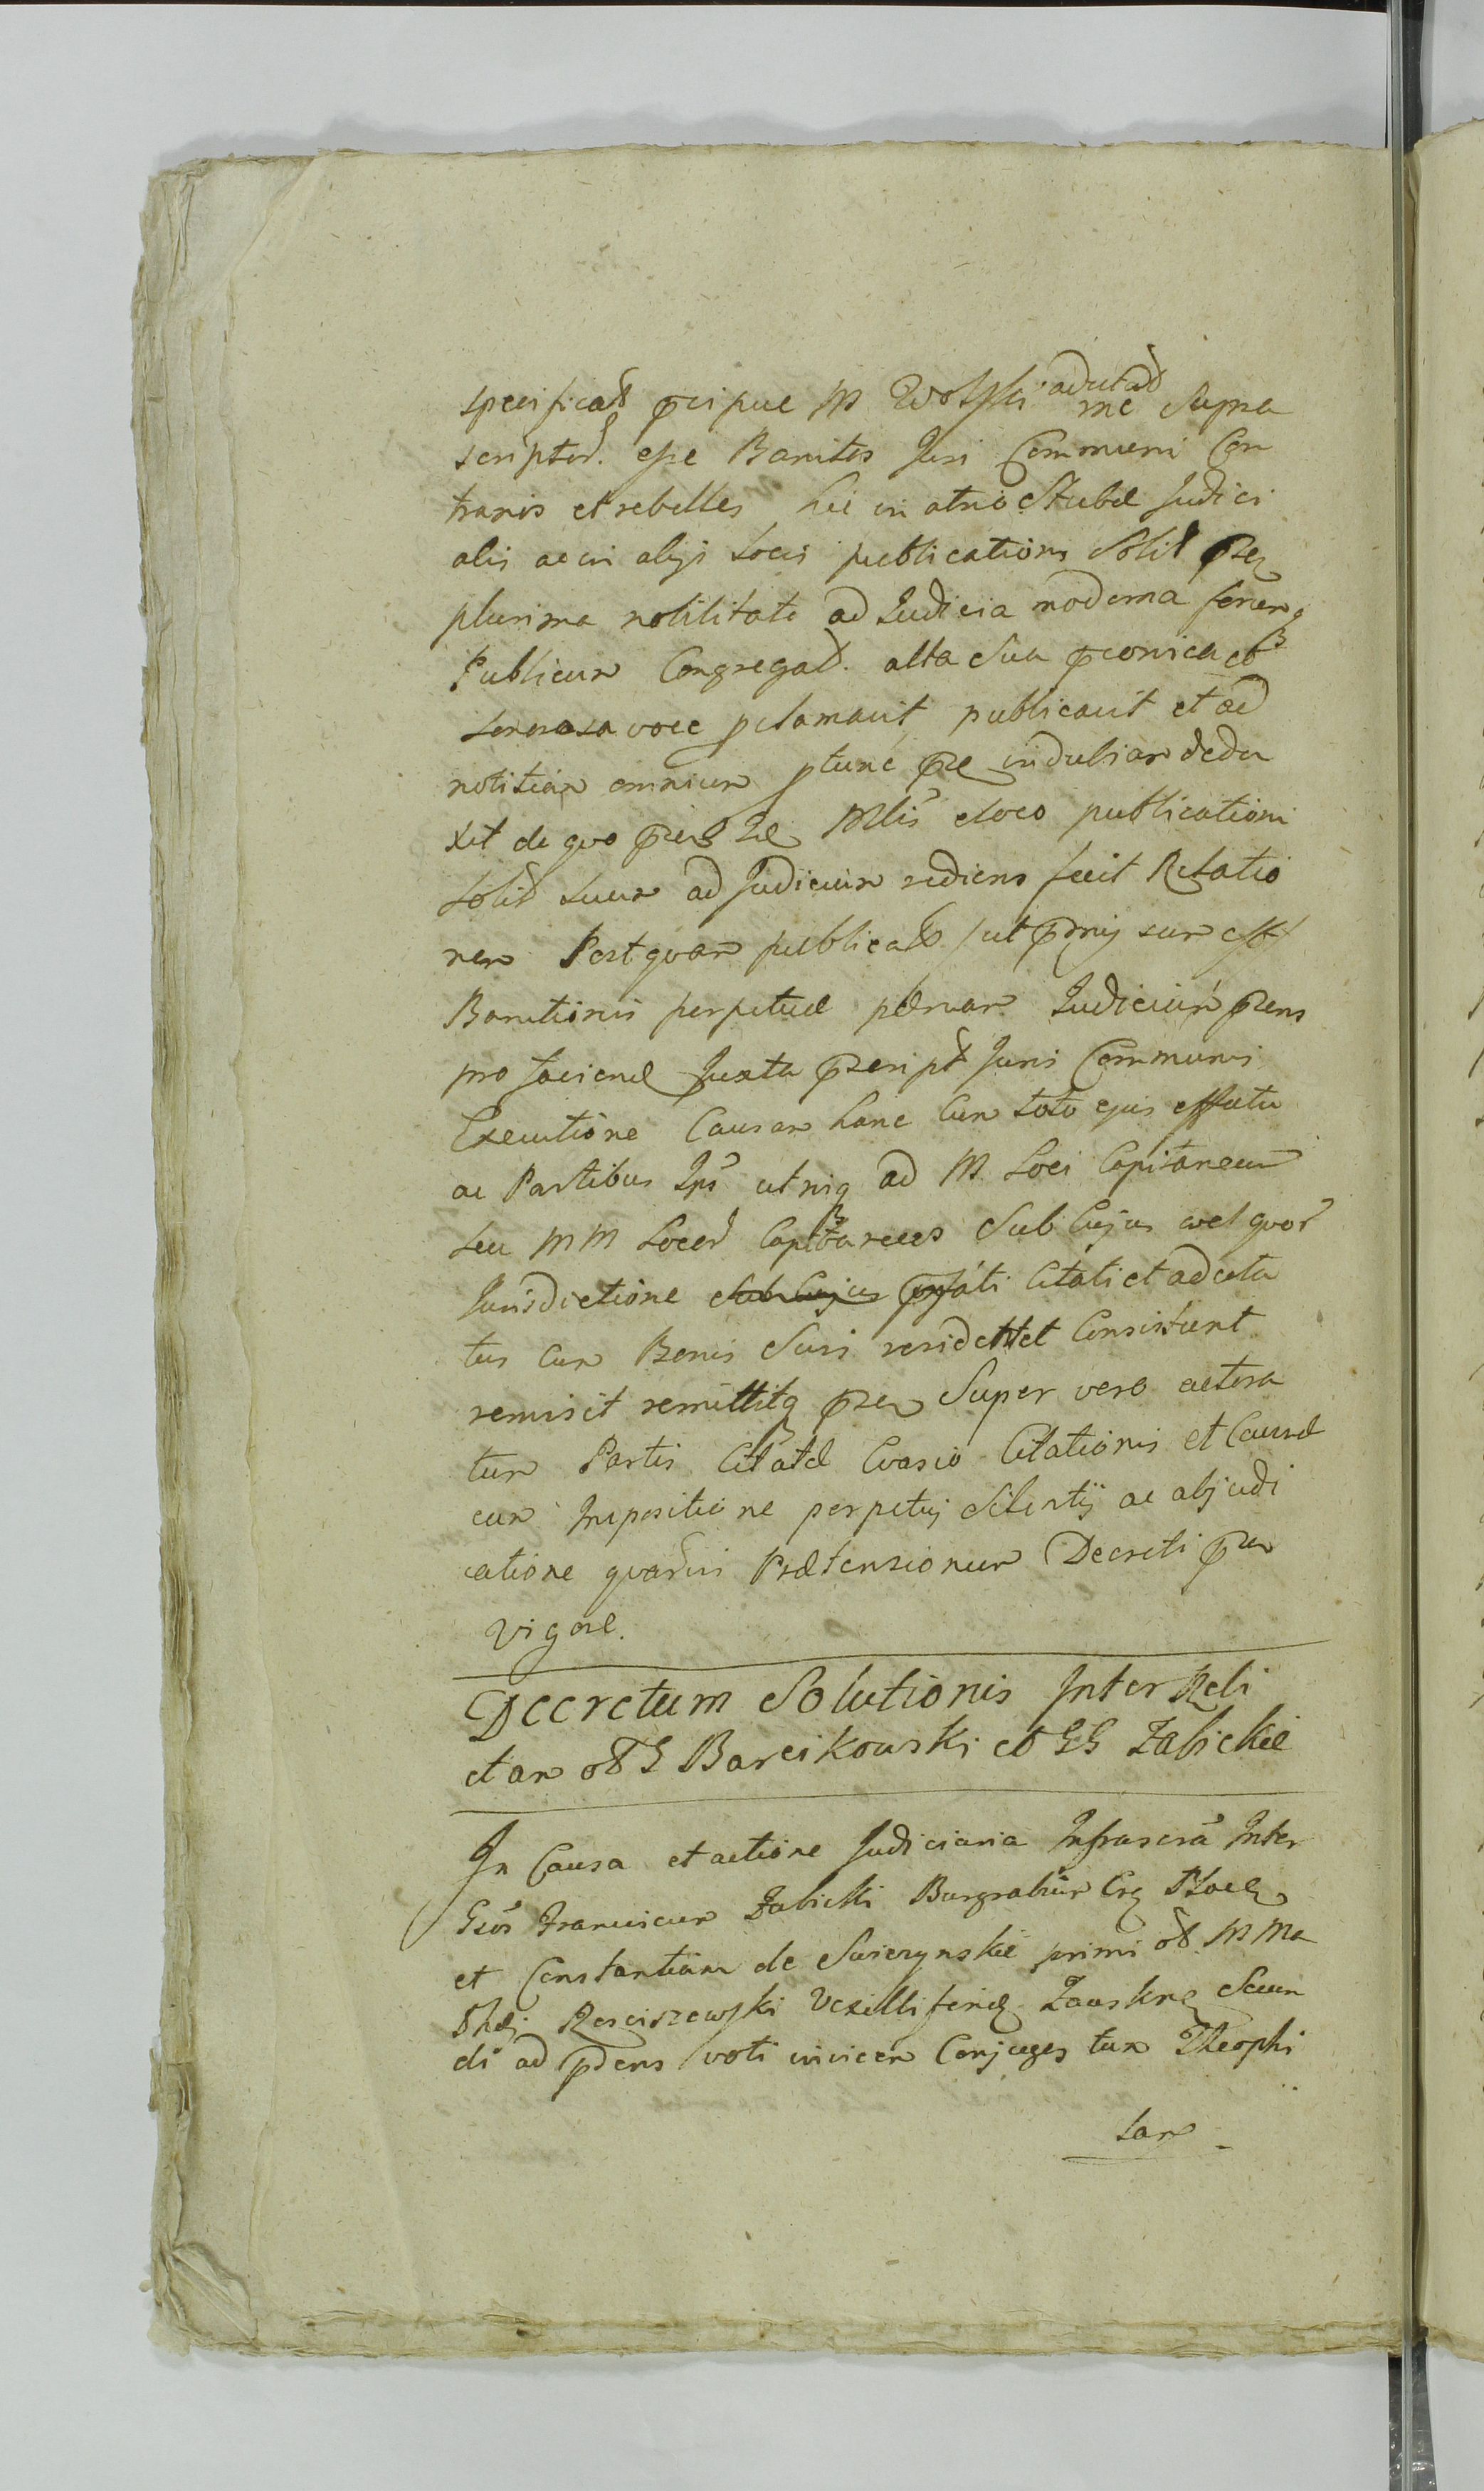 specificat pcipue M Wolski adcitat me Supra
scriptor. esse Banitos Juri Communi Con
trarios et rebelles hic in atrio Stubæ Judici
alis ac in alijs Locis publicationi Solit
plurima nobilitate ad Judicia moderna
Publicum Congregat. alta Sua pconica et
sonorosa voce pclamavit, publicavit et ad
notitiam omnium indubiam dedu
xit de quo e loco publicationi
solit suum ad Judicium rediens fecit Relatio
nem Post quam publicat
Banitionis perpetuæ pænam Judicium pns
pro faciend Juxta pscript Juris Communis
Executione Causam hanc Cum toto ejus effectu
ac Partibus Ips utriq ad M. Loci Capitaneum
seu MM Locor Capitaneos Sub Cujus vel quor
Jurisdictione pfati Citati et adcita
tus Cum Bonis Suis resident et Consistunt
remisit remittitq Super vero actora
tum Partis Citatæ Evasio Citationis et Causæ
cum Impositione perpetuj Silentij ac abjudi
catione quarvis Prætensionum Decreti
vigore.
Decretum Solutionis Inter Reli
ctam ol G Barcikowski et GG Zabickie
In Causa et actione Judiciaria Infrascra Inter
Gsos Franciscum Zabicki Burgrabium
et Constantiam de primi ol. M Ma
Rosciszewski Vexilliferid Zawskrz Secun
di ad pdens voti invicem Conjuges tum Theophi
lam